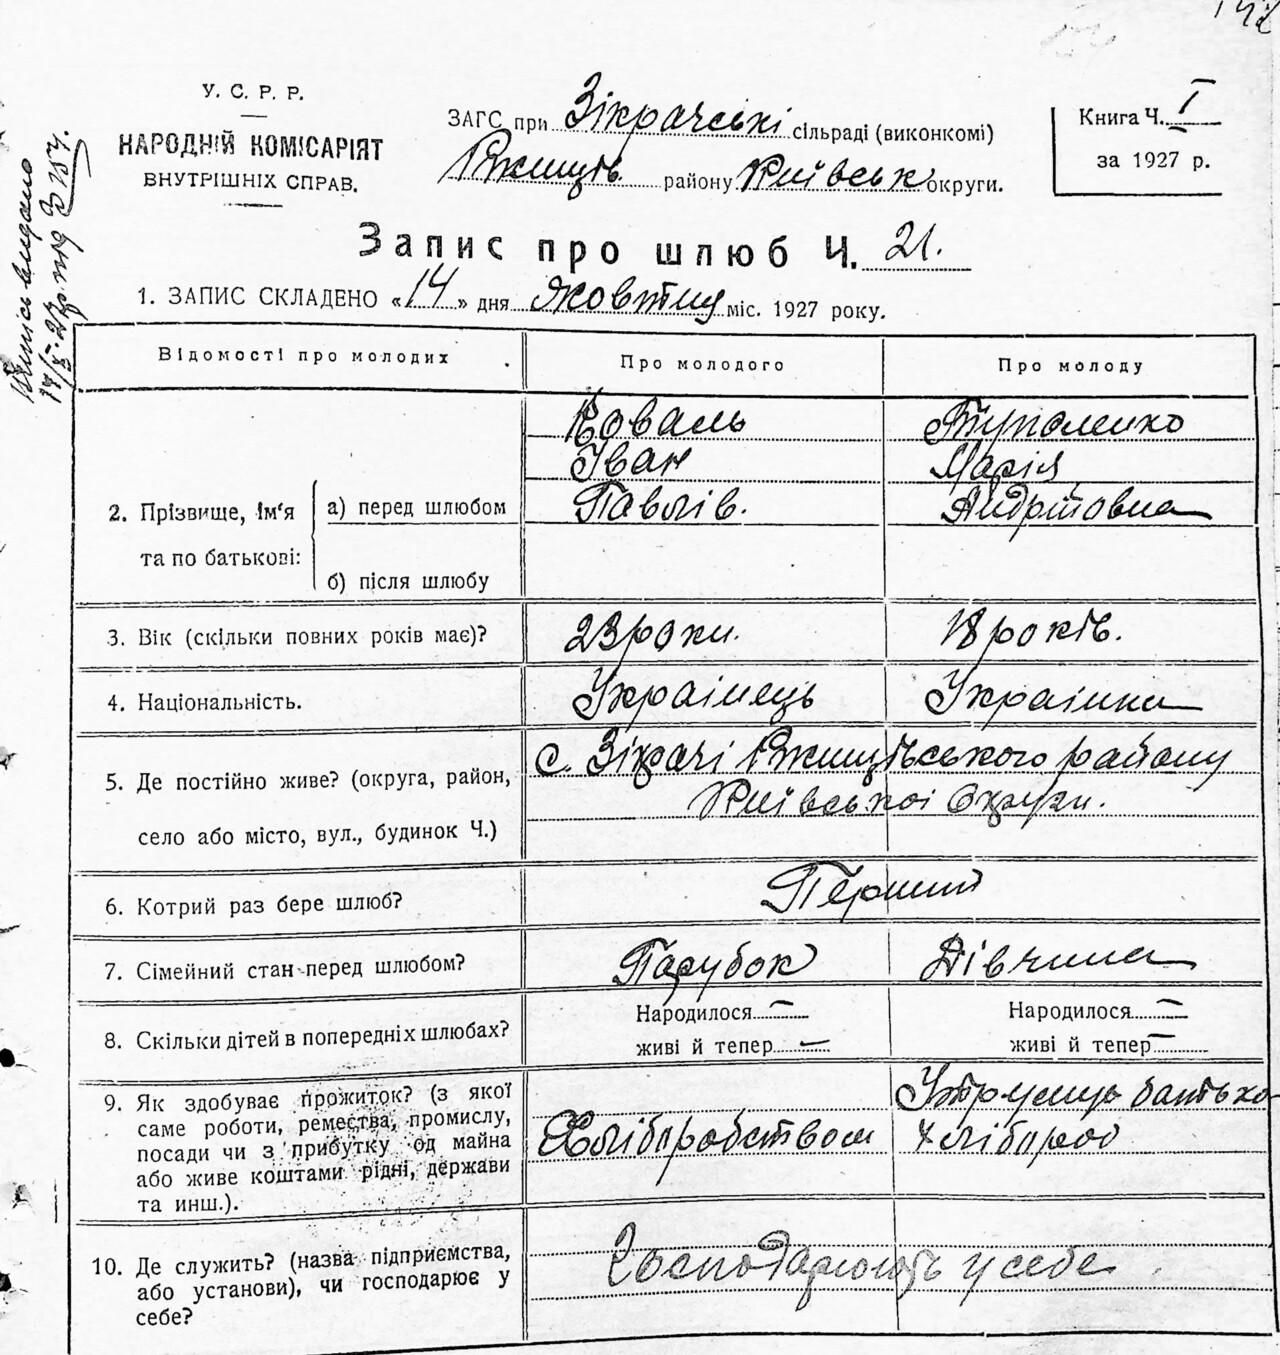 142
У. С. Р. Р.
НАРОДНІЙ КОМІСАРІЯТ
ВНУТРІШНІХ СПРАВ.
ЗАГС при Зікрачські сільраді (виконкомі)
Ржищів. району Київськ округи.
Книга Ч. I
за 1927 р.
Запис про шлюб Ч. 21.
1. ЗАПИС СКЛАДЕНО «14» дня жовтня міс. 1927 року.
Відомості про молодих
Про молодого
Про молоду
2. Прізвище, ім'я та по батькові:
а) перед шлюбом
Коваль
Іван
Павлів.
Марія
Андріївна
б) після шлюбу
3. Вік (скільки повних років має)?
23 роки.
18 років.
4. Національність.
Українець
Українка
5. Де постійно живе? (округа, район,
село або місто, вул., будинок Ч.)
с. Зікрачі Ржищівського району
Київської округи.
6. Котрий раз бере шлюб?
Перший
7. Сімейний стан перед шлюбом?
Парубок
Дівчина
8. Скільки дітей в попередніх шлюбах?
Народилося —
живі й тепер —
Народилося —
живі й тепер —
9. Як здобуває прожиток? (з якої
саме роботи, ремества, промислу,
посади чи з прибутку од майна
або живе коштами рідні, держави
та инш.).
Хліборобством
батька
хлібороб
10. Де служить? (назва підприємства,
або установи), чи господарює у
себе?
Господарюють у себе